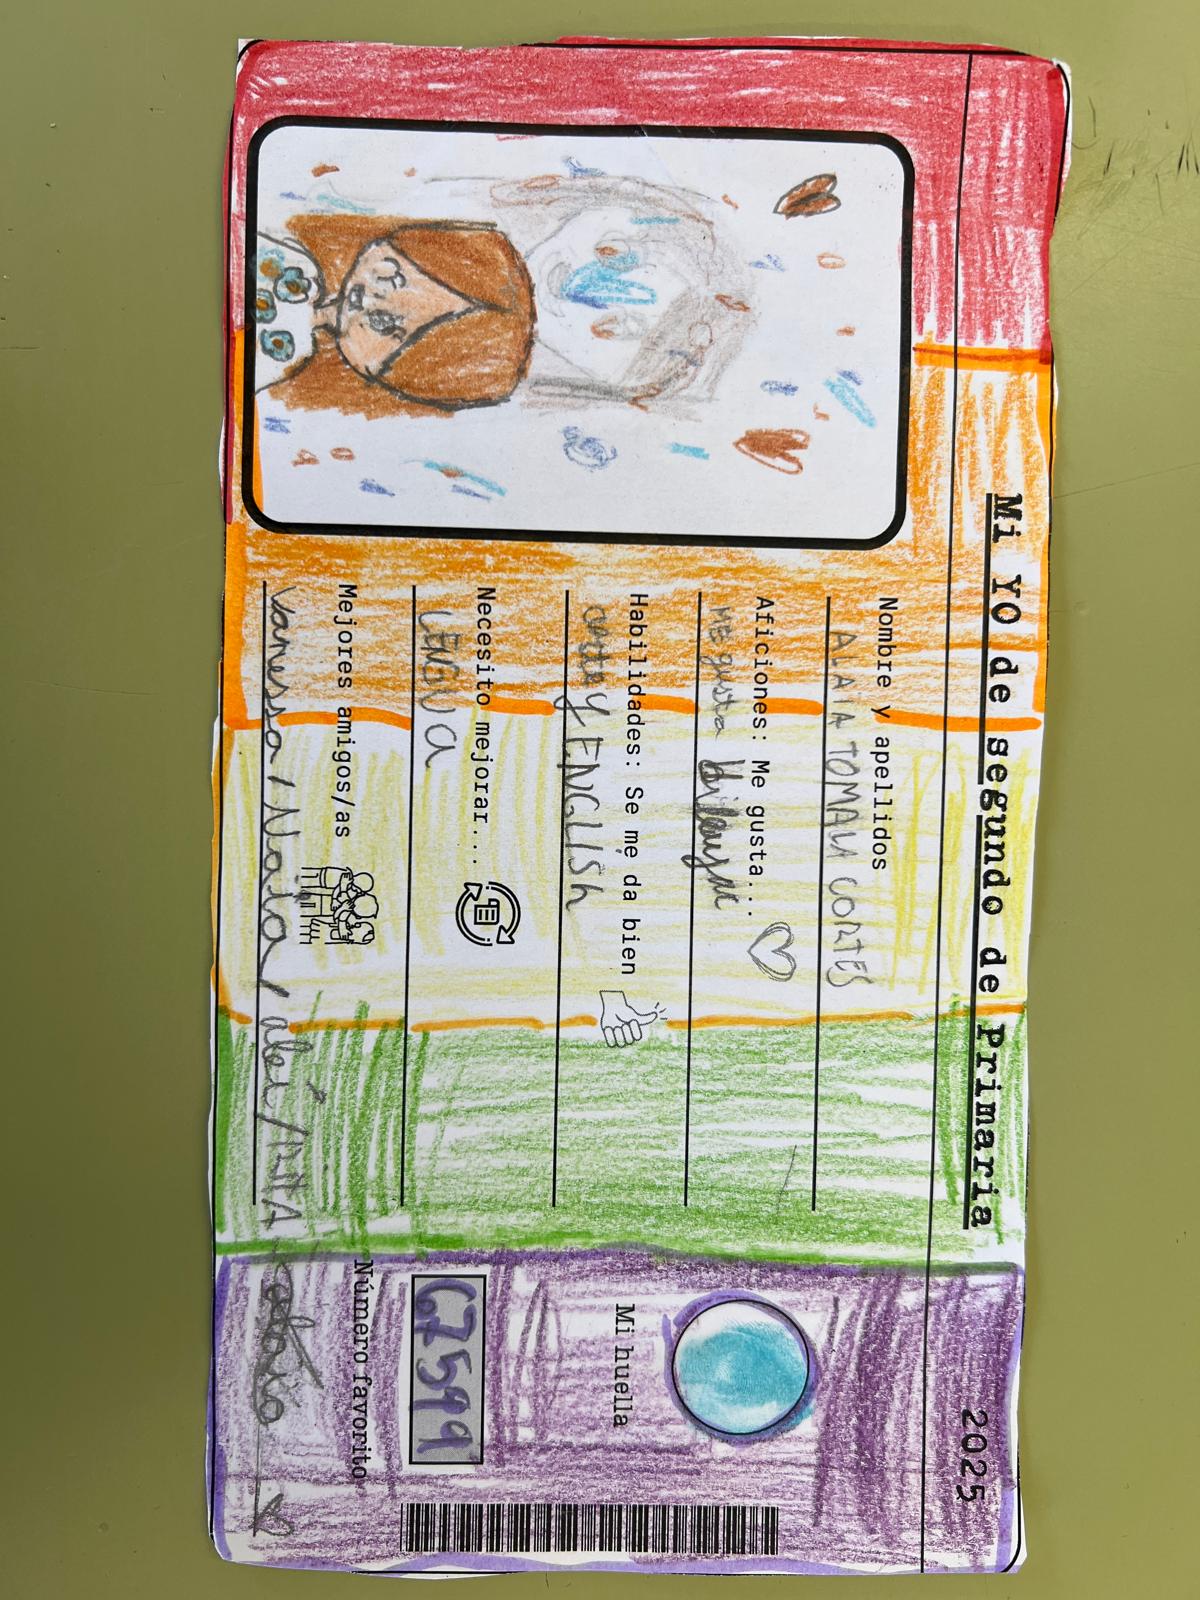 Mi YO de segundo de Primaria
2025
Nombre y apellidos
ALAIA TOMALA CORTES
Aficiones: Me gusta...
ME gusta
Habilidades: Se me da bien
y ENGLISH
Necesito mejorar...
LENGUA
Mejores amigos/as
vanessa / Naia /
Mi huella
67599
Número favorito